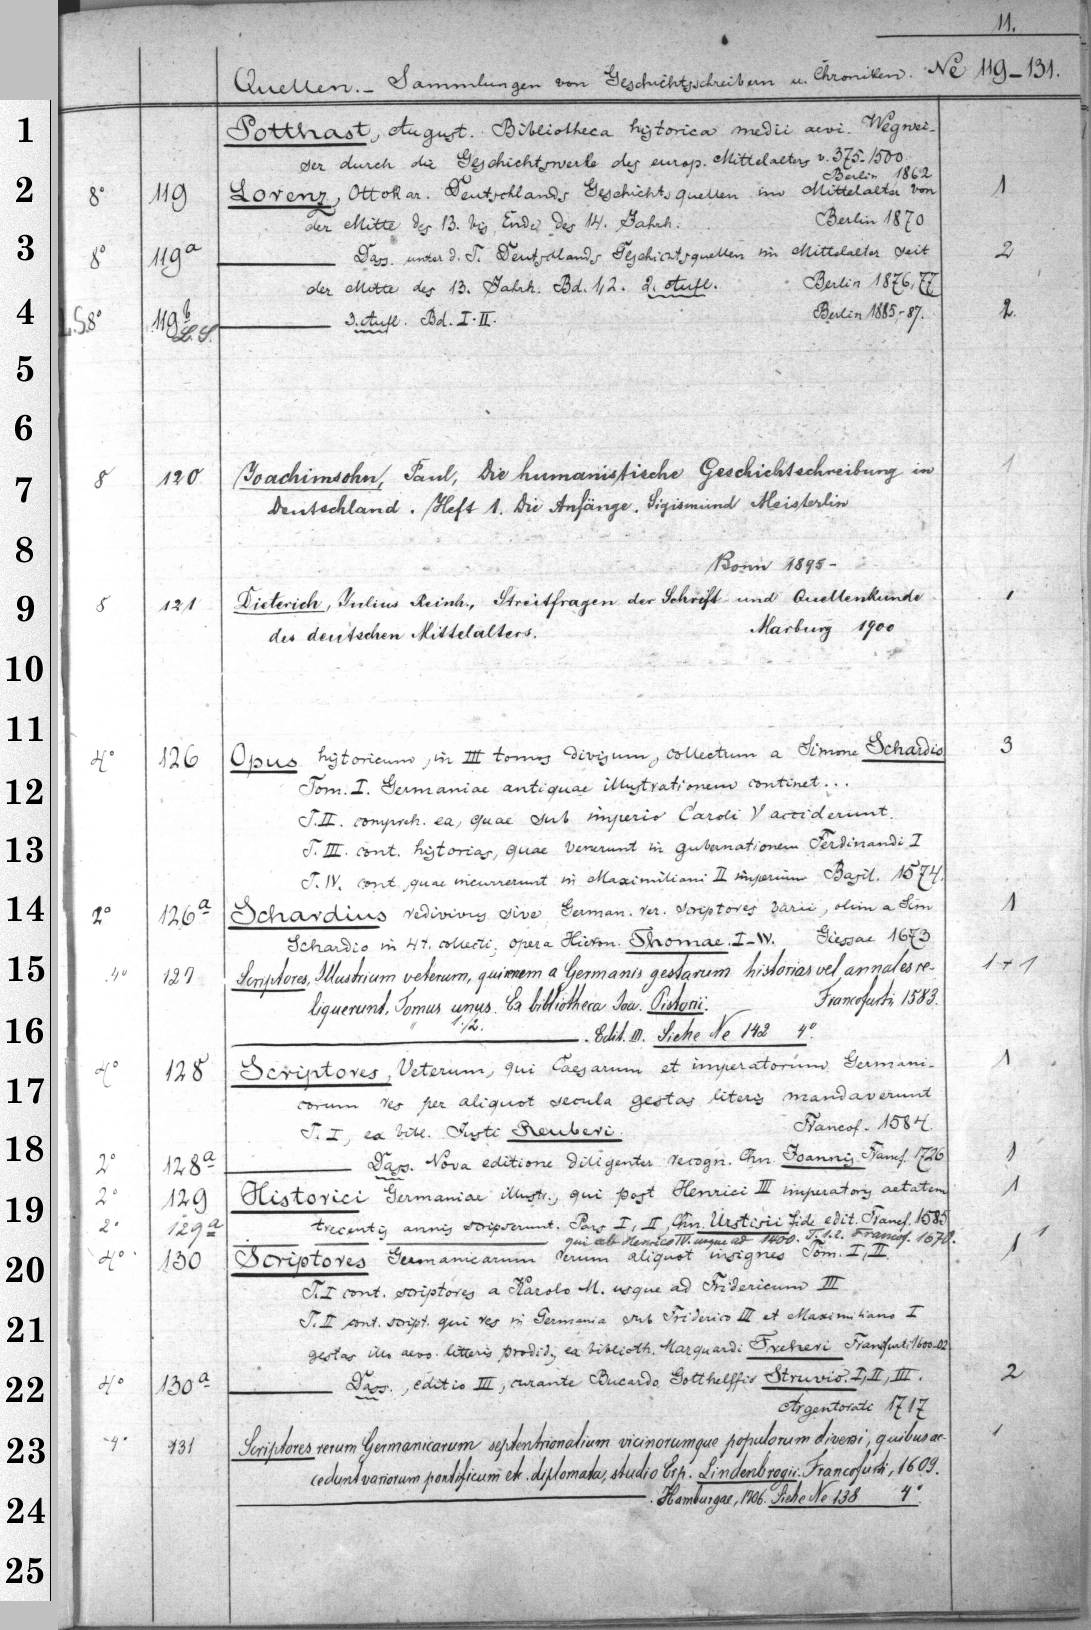 11.
Quellen. – Sammlungen von Geschichtsschreibern u. Chroniken. No 119–131.
1 Potthast, August. Bibliotheca historica medii aevi. Wegwei-
ser durch die Geschichtswerke des europ. Mittelalters v. 375–1500.
Berlin 1862
2 8° 119 Lorenz, Ottokar. Deutschlands Geschichtsquellen im Mittelalter von 1
der Mitte des 13. bis Ende des 14. Jahrh. Berlin 1870
3 8° 119a ——— Dass. unter d. T. Deutschlands Geschichtsquellen im Mittelalter seit 2
der Mitte des 13. Jahrh. Bd. 1, 2. 2. Aufl. Berlin 1876, 77
4 L.S. 8° 119b ——— 3. Aufl. Bd. I–II. Berlin 1885–87. 2.
L.S.
5
6
7 8 120 Joachimsohn, Paul, Die humanistische Geschichtschreibung in 1
Deutschland. Heft 1. Die Anfänge. Sigismund Meisterlin
8 Bonn 1895–
9 8 121 Dieterich, Julius Reinh., Streitfragen der Schrift und Quellenkunde 1
des deutschen Mittelalters. Marburg 1900
10
11 4° 126 Opus historicum, in III tomos divisum, collectum a Simone Schardio 3
12 Tom. I. Germaniae antiquae illustrationem continet...
T. II. compreh. ea, quae sub imperio Caroli V acciderunt.
13 T. III. cont. historias, quae venerunt in gubernationem Ferdinandi I
T. IV. cont. quae incurrerunt in Maximiliani II imperium Basil. 1574.
14 2° 126a Schardius redivivus sive German. rer. scriptores varii, olim a Sim 1
Schardio in 4 t. collecti, opera Hieron. Thomae. I–IV. Giessae 1673
15 4° 127 Scriptores, Illustrium veterum, qui rerum a Germanis gestarum historias vel annales re- 1+1
liquerunt. Tomus unus. Ex bibliotheca Joa. Pistorii. Francofurti 1583.
" 1.2.
16 ——— . Edit. III. Siehe No 142 4°.
4° 128 Scriptores, Veterum, qui Caesarum et imperatorum Germani- 1
17 corum res per aliquot secula gestas literis mandaverunt
T. I, ex bibl. Justi Reuberi. Francof. 1584.
18 2° 128a ——— Dass. Nova editione diligenter recogn. Chn. Joannis Francf. 1726 1
19 2° 129 Historici Germaniae illustr., qui post Henrici III imperatoris aetatem 1
2° 129a trecentis annis scripserunt. Pars I, II, Chn. Urstisii fide edit. Francf. 1585
——— qui ab Henrico IV. usque ad 1400. T. 1.2. Francof. 1670. 1
20 4° 130 Scriptores Germanicarum rerum aliquot insignes Tom. I, II 1
T. I cont. scriptores a Karolo M. usque ad Fridericum III
21 T. II cont. script. qui res in Germania sub Friderico III et Maximiliano I
gestas illo aevo litteris prodid, ex biblioth. Marquardi Freheri Francfurti 1600–02
22 4° 130a ——— Dass., editio III, curante Bucardo Gotthelffio Struvio. I, II, III. 2
Argentorati 1717
23 4° 131 Scriptores rerum Germanicarum septentrionalium vicinorumque populorum diversi, quibus ac- 1
cedunt variorum pontificum etc. diplomata, studio Erp. Lindenbrogii. Francofurti, 1609.
24 ——— . Hamburgae, 1706. Siehe No 138 4°.
25